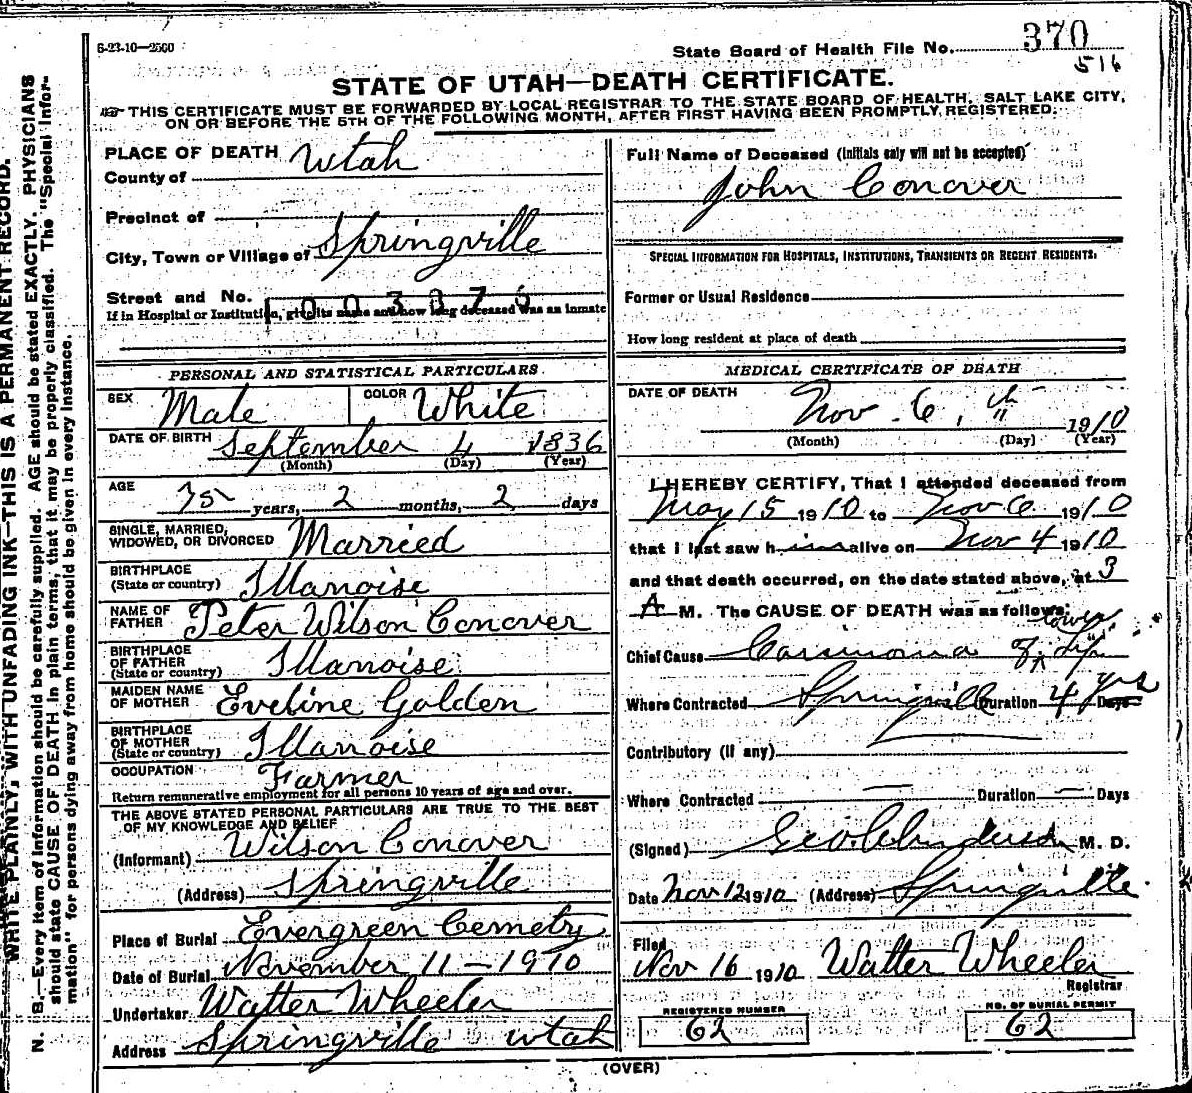 6-23-10—2500
State Board of Health File No. 370
516
STATE OF UTAH—DEATH CERTIFICATE.
THIS CERTIFICATE MUST BE FORWARDED BY LOCAL REGISTRAR TO THE STATE BOARD OF HEALTH, SALT LAKE CITY,
ON OR BEFORE THE 5TH OF THE FOLLOWING MONTH, AFTER FIRST HAVING BEEN PROMPTLY REGISTERED.
PLACE OF DEATH
County of Utah
Precinct of
City, Town or Village of Springville
Street and No.
1003876
If in Hospital or Institution, give its name and how long deceased was an inmate
PERSONAL AND STATISTICAL PARTICULARS.
SEX Male COLOR White
DATE OF BIRTH September 4 1836
(Month) (Day) (Year)
AGE 75 years, 2 months, 2 days
SINGLE, MARRIED,
WIDOWED, OR DIVORCED Married
BIRTHPLACE
(State or country) Illanoise
NAME OF
FATHER Peter Wilson Conover
BIRTHPLACE
OF FATHER
(State or country) Illanoise
MAIDEN NAME
OF MOTHER Eveline Golden
BIRTHPLACE
OF MOTHER
(State or country) Illanoise
OCCUPATION Farmer
Return remunerative employment for all persons 10 years of age and over.
THE ABOVE STATED PERSONAL PARTICULARS ARE TRUE TO THE BEST
OF MY KNOWLEDGE AND BELIEF
(Informant) Wilson Conover
(Address) Springville
Place of Burial Evergreen Cemetry
Date of Burial November 11 - 1910
Undertaker Walter Wheeler
Address Springville Utah
Full Name of Deceased (Initials only will not be accepted)
John Conover
SPECIAL INFORMATION FOR HOSPITALS, INSTITUTIONS, TRANSIENTS OR RECENT RESIDENTS.
Former or Usual Residence
How long resident at place of death
MEDICAL CERTIFICATE OF DEATH
DATE OF DEATH
Nov. 6, th 1910
(Month) (Day) (Year)
I HEREBY CERTIFY, That I attended deceased from
May 15 1910 to Nov 6 1910
that I last saw him alive on Nov 4 1910
and that death occurred, on the date stated above, at 3
A M. The CAUSE OF DEATH was as follows:
Chief Cause Carcinoma of lower Lip
Where Contracted Springville Duration 4 yrs Days
Contributory (if any)
Where Contracted — Duration — Days
(Signed) Geo. Anderson M. D.
Date Nov 12 1910 (Address) Springville
Filed
Nov 16 1910 Walter Wheeler
Registrar
REGISTERED NUMBER
62
NO. OF BURIAL PERMIT
62
(OVER)
N. B.—Every item of information should be carefully supplied. AGE should be stated EXACTLY. PHYSICIANS
should state CAUSE OF DEATH in plain terms, that it may be properly classified. The "Special Infor-
mation" for persons dying away from home should be given in every instance.
WRITE PLAINLY, WITH UNFADING INK—THIS IS A PERMANENT RECORD.